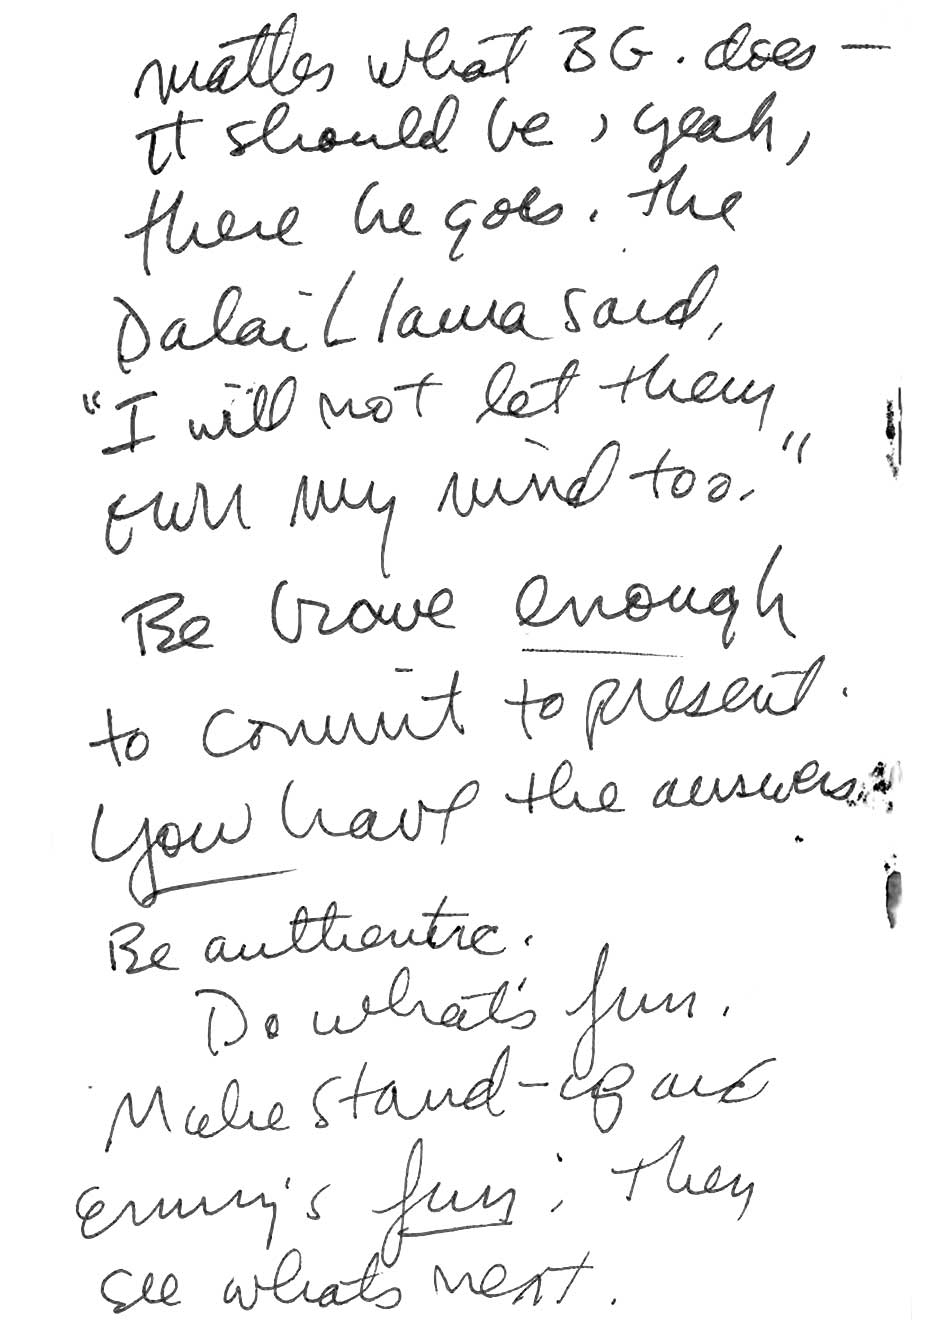 matters what BG. does —
It should be, yeah,
there he goes. the
Dalai Llama said,
"I will not let them
own my mind too."
Be brave enough
to commit to present.
You have the answers.
Be authentic.
Do what's fun.
Make stand-up and
Emmy's fun; then
see whats next.